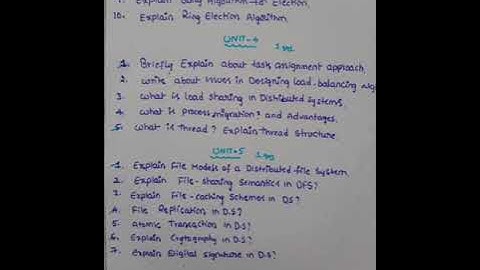 Explain Bully Algorithm for Election.
10. Explain Ring Election Algorithm
UNIT-4
1. Briefly Explain about task assignment approach.
2. write about Issues in Designing load-balancing Alg
3. What is load sharing in Distributed systems.
4. what is process migration? and Advantages.
5. What is thread? Explain thread structure.
UNIT-5
1. Explain File Models of a Distributed file System
2. Explain File-sharing Semantics in DFS?
3. Explain File-caching Schemes in DS?
4. File Replication in D.S?
5. Atomic Transaction in D.S?
6. Explain Crytography in D.S?
7. Explain Digital signature in D.S?